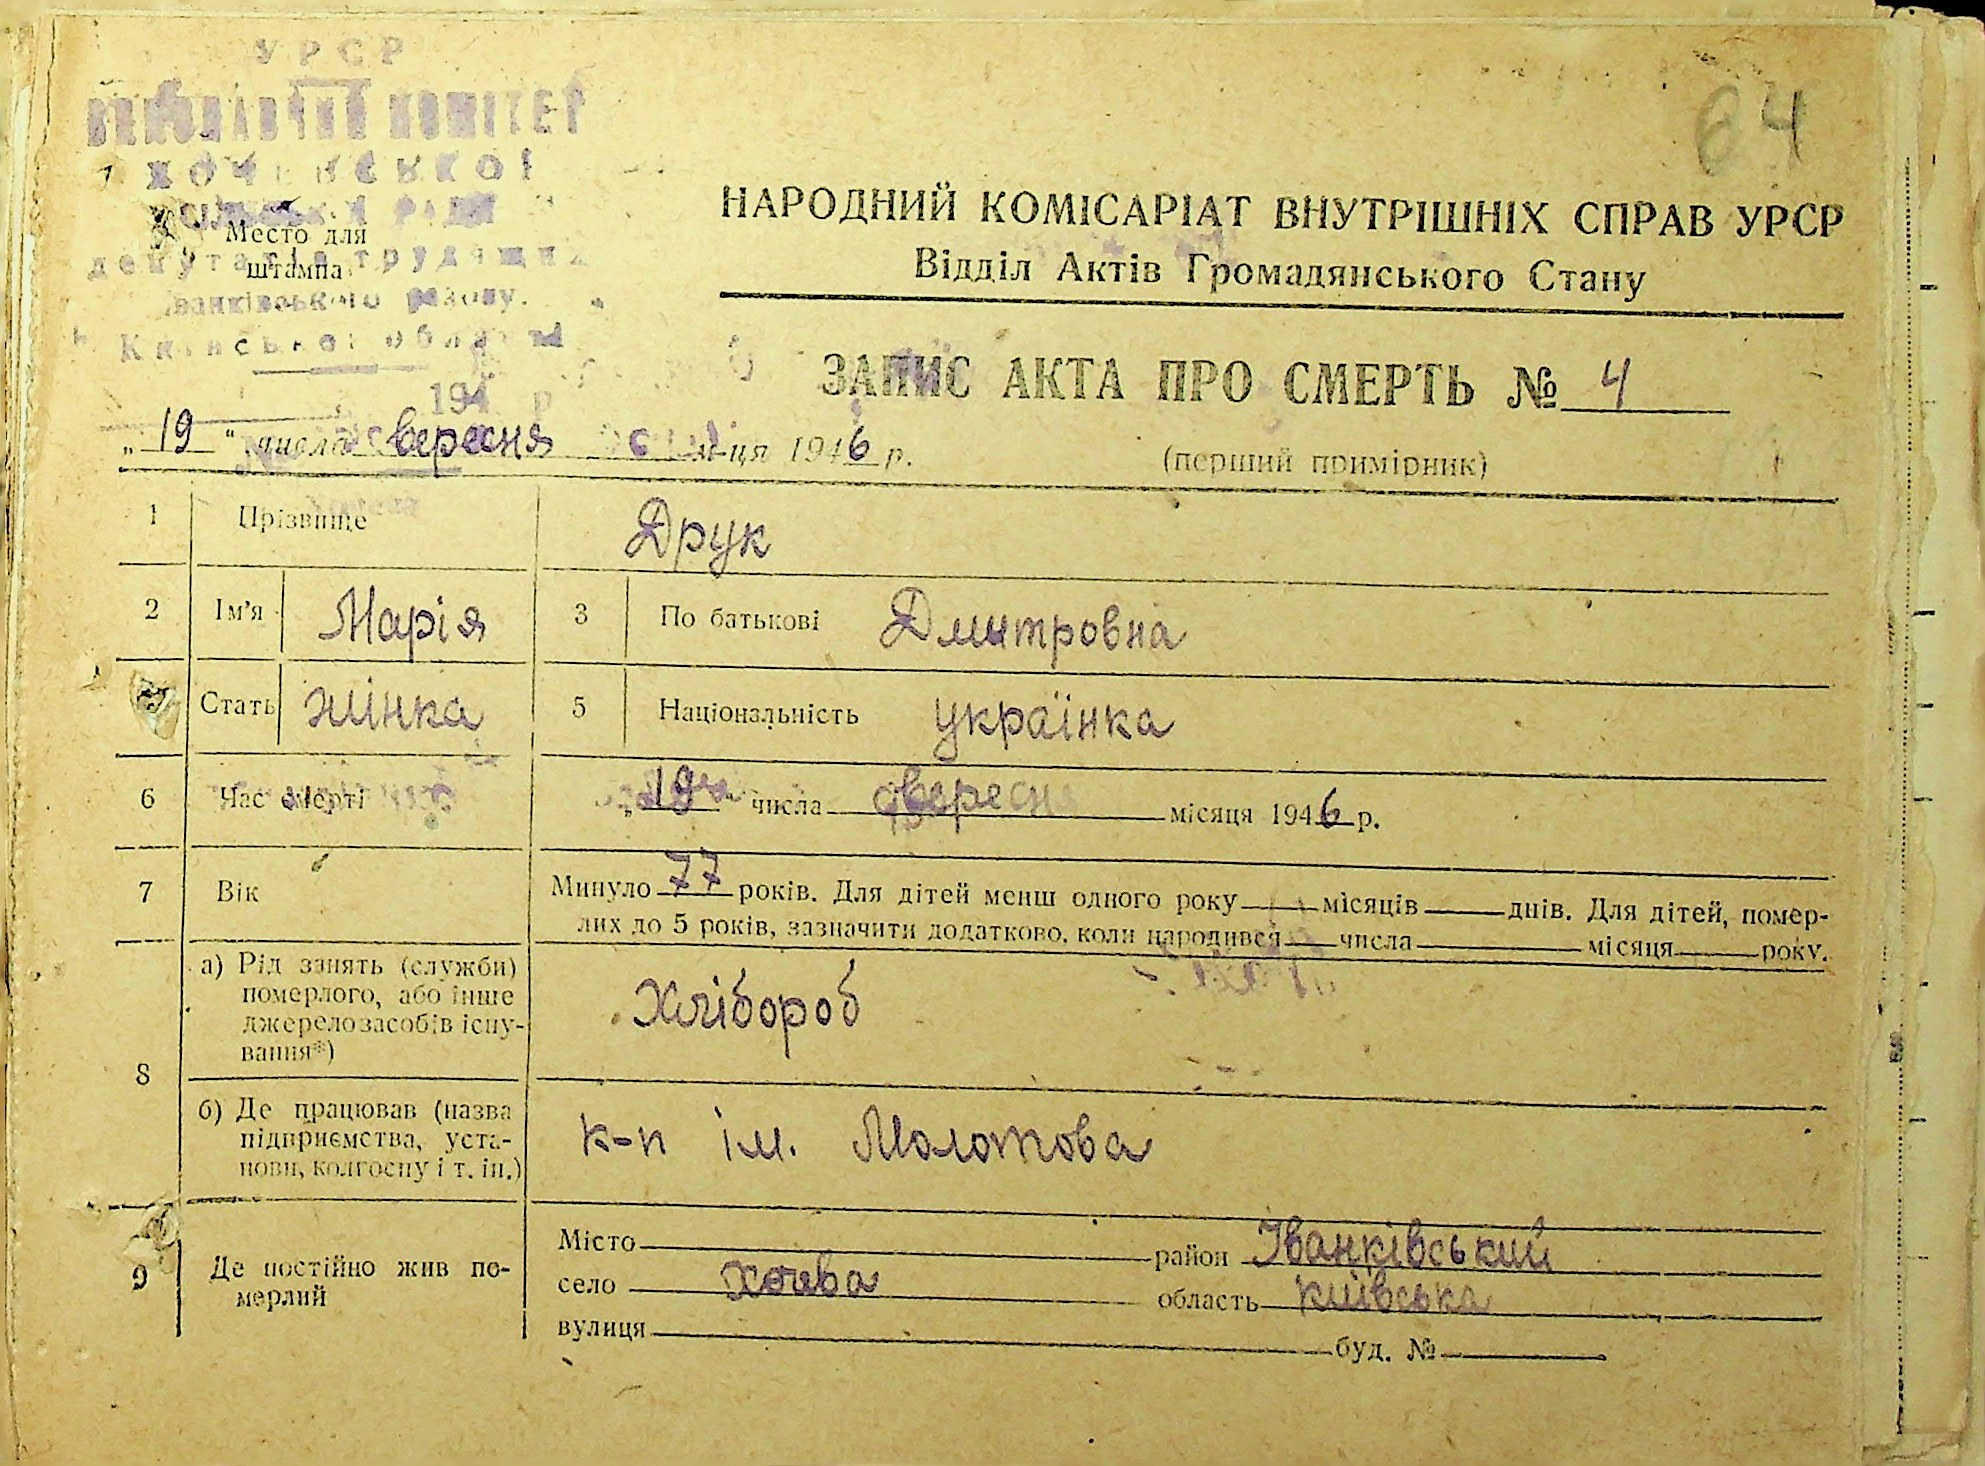 УРСР
ВИКОНАВЧИЙ КОМІТЕТ
64
НАРОДНИЙ КОМІСАРІАТ ВНУТРІШНІХ СПРАВ УРСР
Место для
штампа
депутатів трудящих
Іванківського
Відділ Актів Громадянського Стану
Київської області
ЗАПИС АКТА ПРО СМЕРТЬ № 4
194 р
„19“ числа вересня м-ця 1946 р.
(перший примірник)
1 Прізвище Друк
2 Ім’я Марія 3 По батькові Дмитровна
Стать жінка 5 Національність українка
6 Час смерті „19“ числа вересня місяця 1946 р.
7 Вік Минуло 77 років. Для дітей менш одного року місяців днів. Для дітей, помер-
лих до 5 років, зазначити додатково, коли народився числа місяця року.
8 а) Рід занять (служби)
померлого, або інше
джерело засобів існу-
вання*)
Хлібороб
б) Де працював (назва
підприємства, уста-
нови, колгоспу і т. ін.)
к-п ім. Молотова
9 Де постійно жив по-
мерлий
Місто район Іванківський
село область Київська
вулиця буд. №